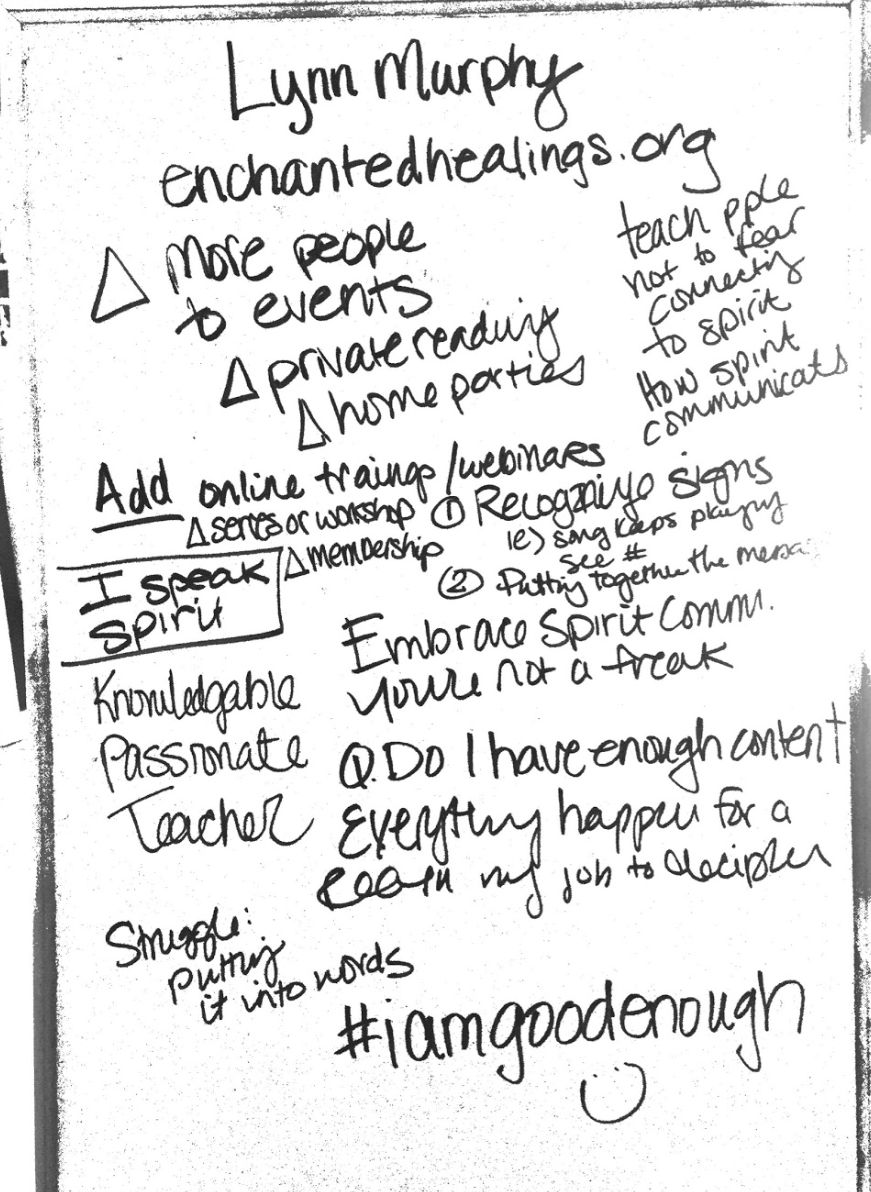 Lynn Murphy
enchantedhealings.org
△ More people
to events
△ private reading
△ home parties
teach pple
not to fear
connecting
to spirit
How spirit
communicats
Add online traings/webinars
△ series or workshop
△ membership
① Recognizing signs
ie) song keeps playing
see #
② Putting together the messa
I speak
Spirit
Embrace Spirit Comm.
you're not a freak
Knowledgable
Passionate
Teacher
Q. Do I have enough content
Everything happen for a
reason my job to decipher
Struggle:
putting
it into words
#iamgoodenough